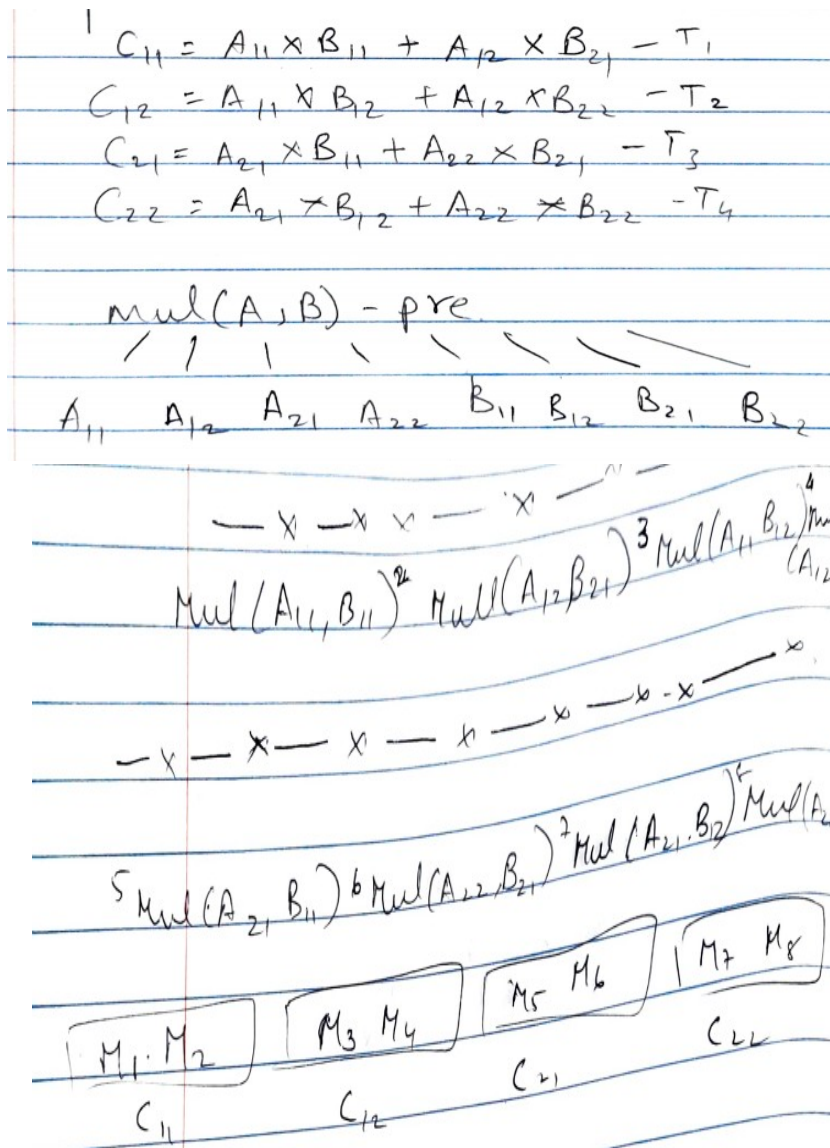 C11 = A11 × B11 + A12 × B21 - T1
C12 = A11 × B12 + A12 × B22 - T2
C21 = A21 × B11 + A22 × B21 - T3
C22 = A21 × B12 + A22 × B22 - T4
mul(A, B) - pre
A11 A12 A21 A22 B11 B12 B21 B22
— x — x x — x —
Mul(A11, B11) 2 Mull(A12 B21) 3 Mul(A11 B12) 4 (A12
— x — x — x — x — x — x - x — x
5 Mul(A21 B11) 6 Mul(A22, B21) 7 Mul(A21, B12) Mul(A2
M1. M2 M3 M4 M5 M6 M7 M8
C11 C12 C21 C22